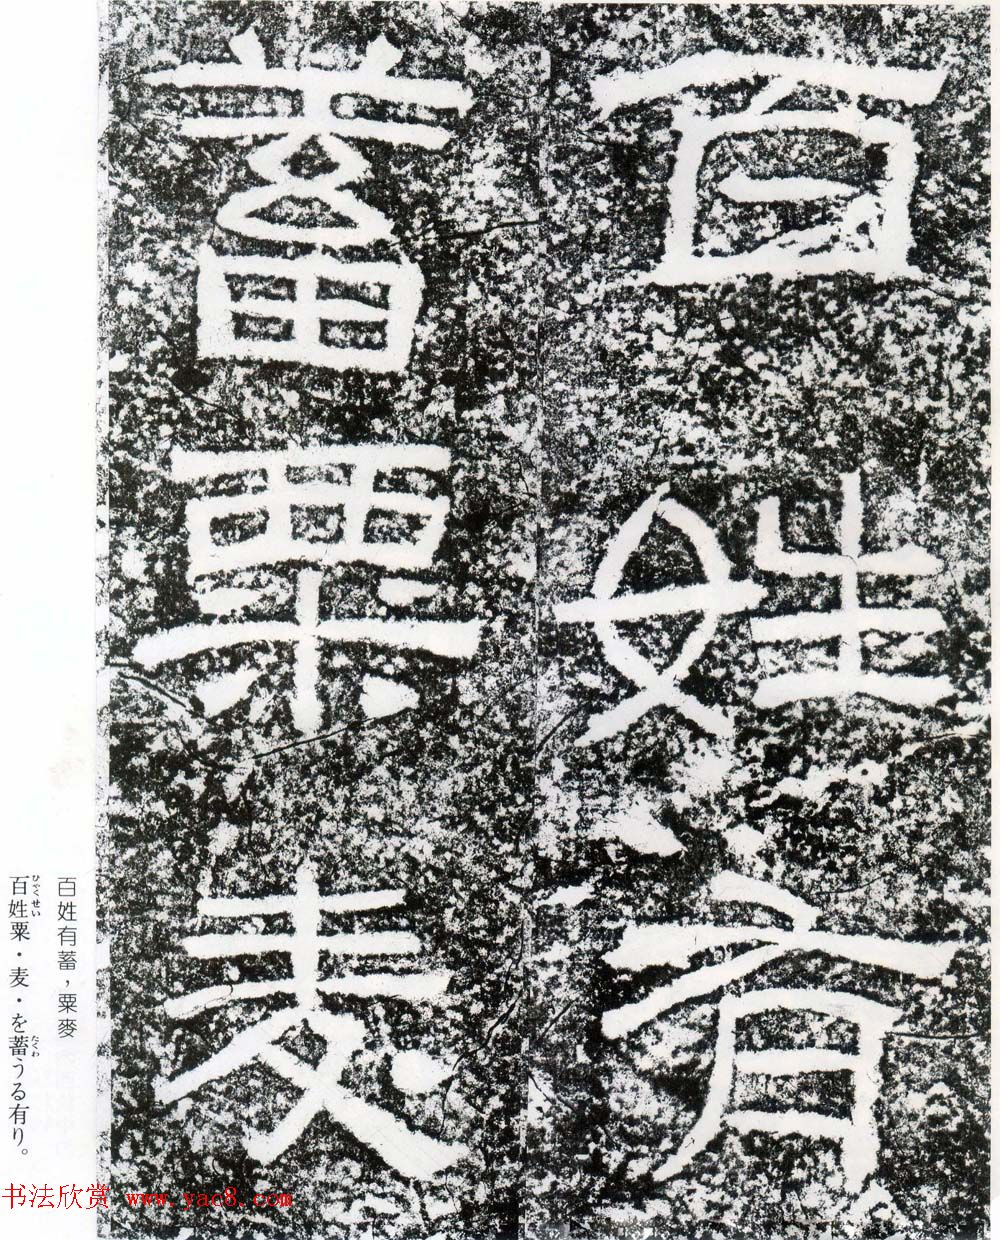 百姓有
蓄粟麦
百姓有蓄，粟麥
百姓粟・麦・を蓄うる有り。
ひゃくせい
たくわ
书法欣赏 www.yac8.com